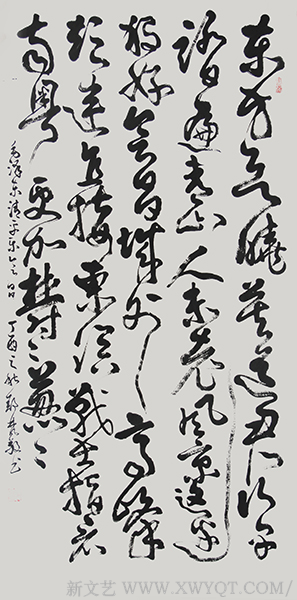 东方欲晓莫道君行早
踏遍青山人未老风景这边
独好会昌城外高峰
颠连直接东溟战士指看
南粤更加郁々葱々
毛泽东清平乐会昌 丁酉之秋
新文艺 WWW.XWYQT.COM/